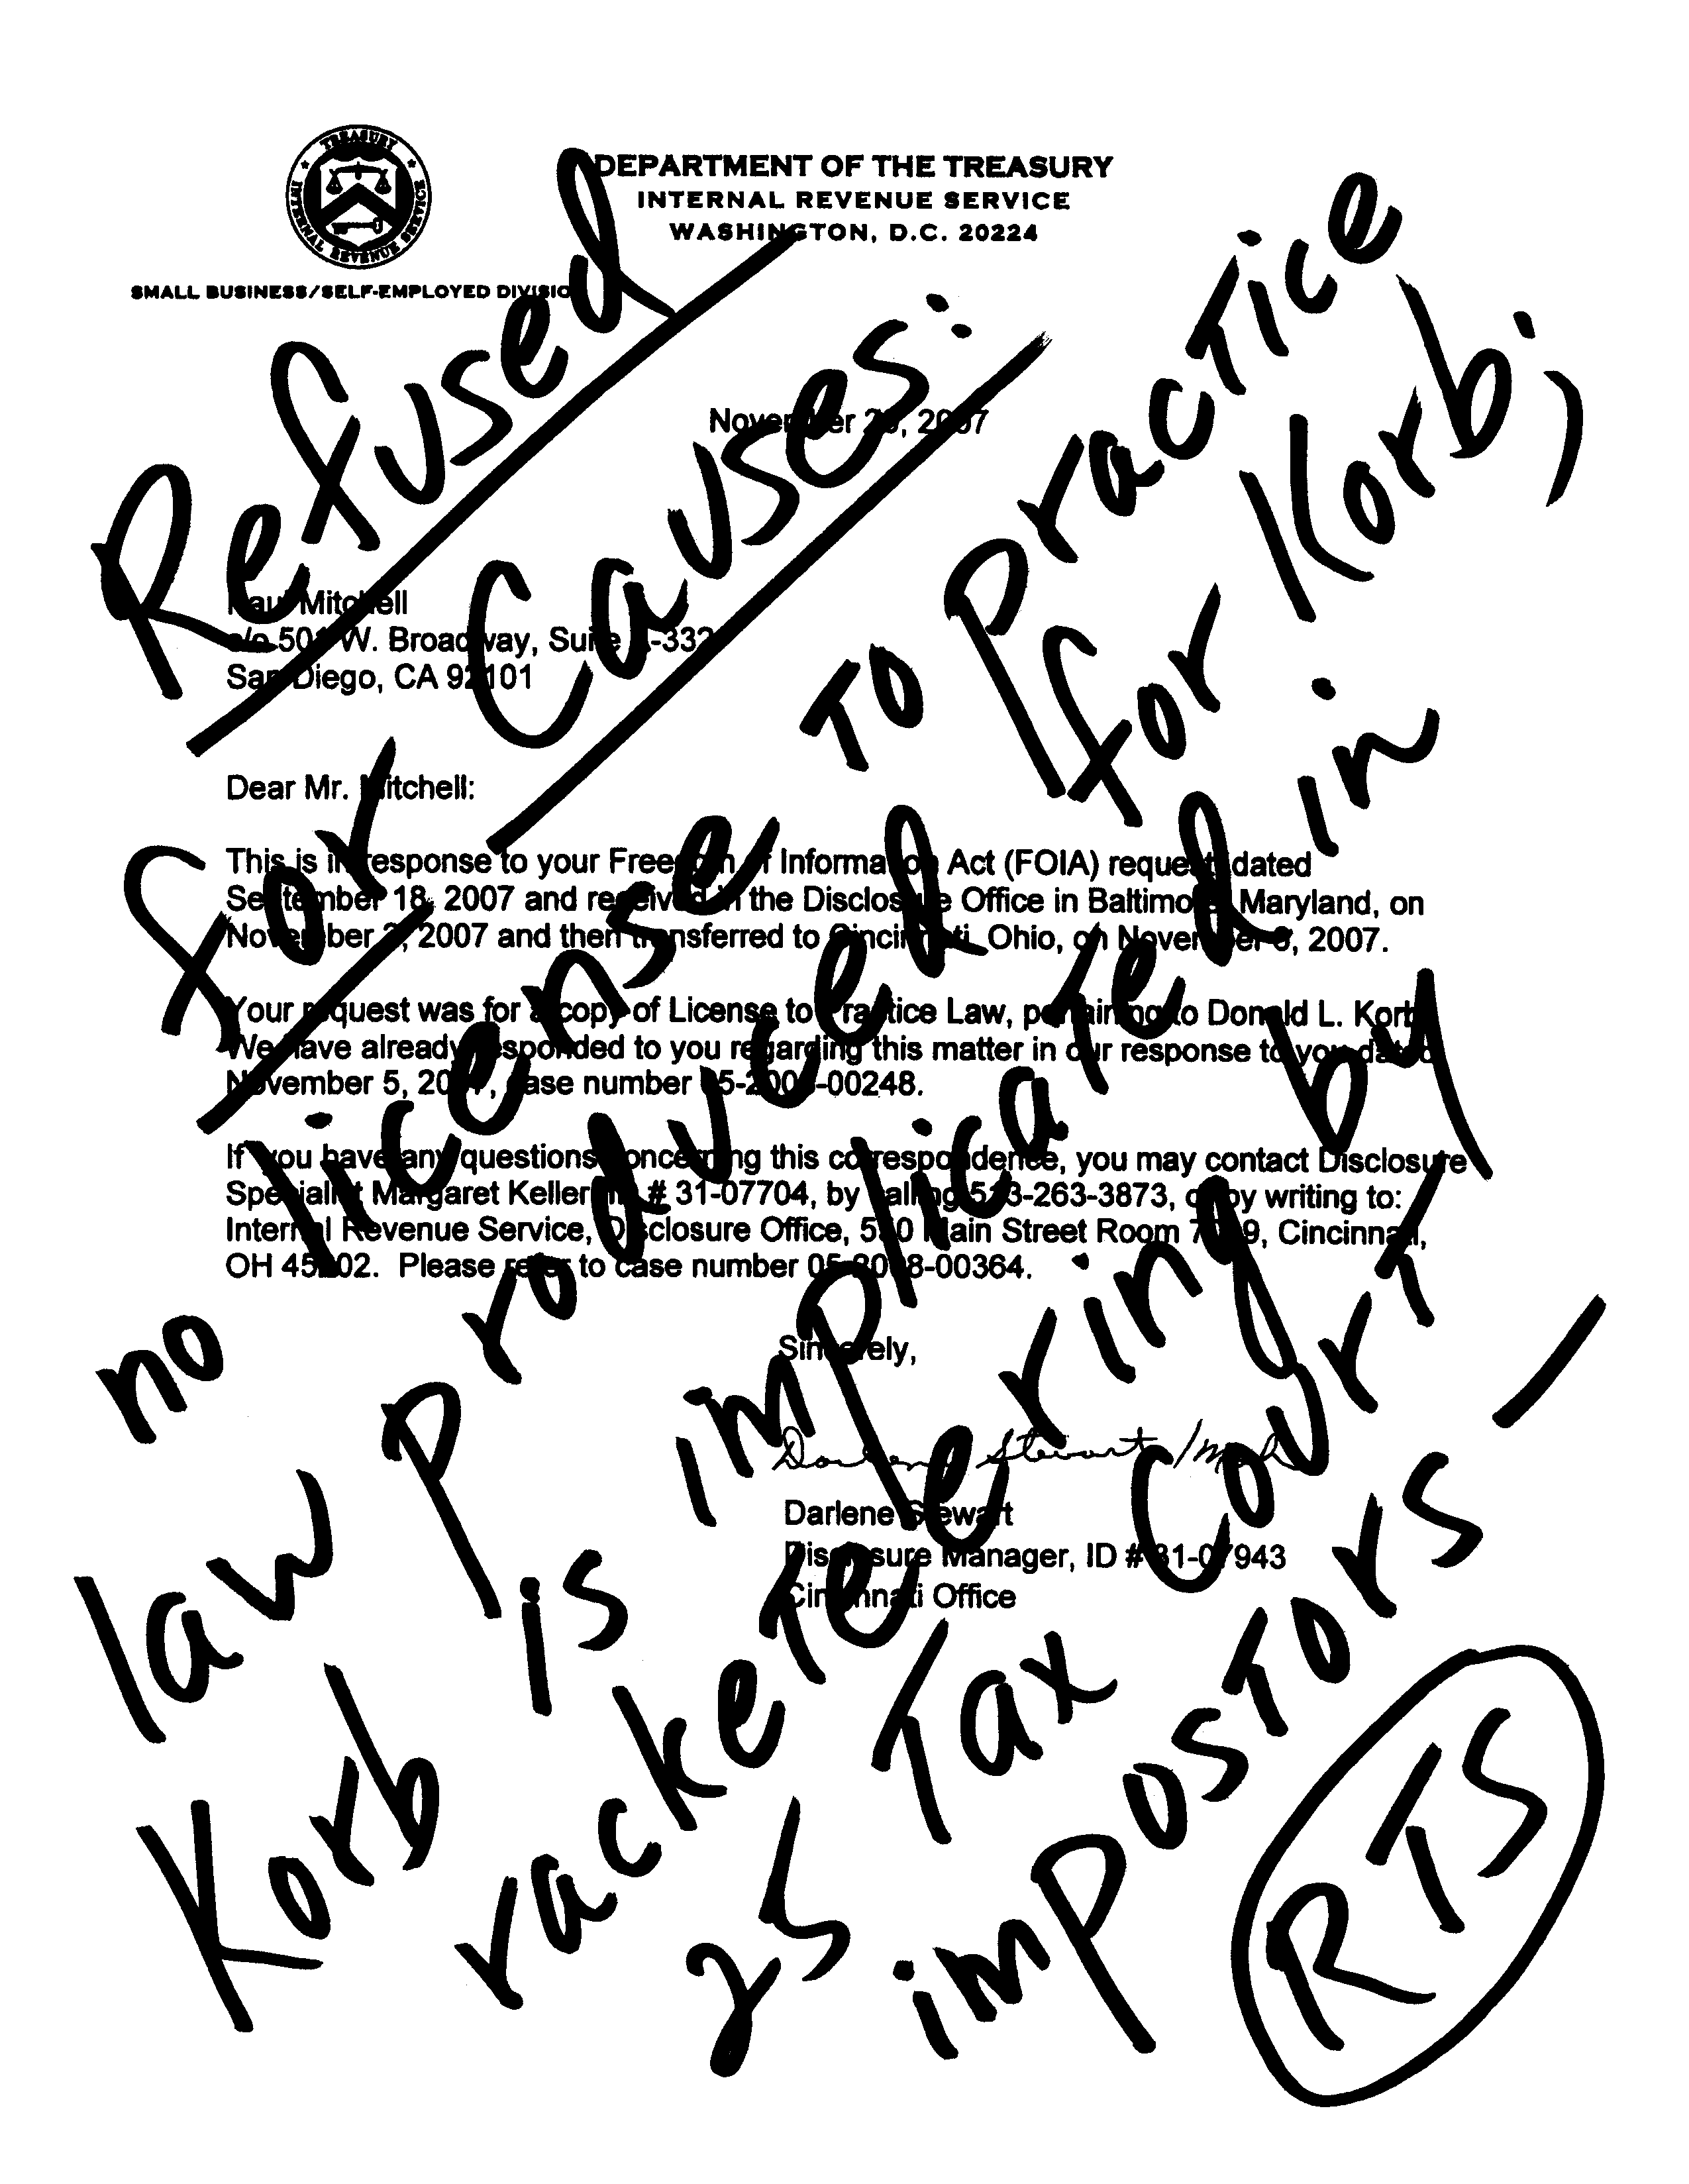 TREASURY
INTERNAL REVENUE SERVICE
DEPARTMENT OF THE TREASURY
INTERNAL REVENUE SERVICE
WASHINGTON, D.C. 20224
SMALL BUSINESS/SELF-EMPLOYED DIVISIO
November 2007
Paul Mitchell
c/o 501 W. Broadway, Suite -332
San Diego, CA 92101
Dear Mr. Mitchell:
This is in response to your Freedom of Information Act (FOIA) request dated
September 18, 2007 and received in the Disclosure Office in Baltimore, Maryland, on
November 2, 2007 and then transferred to Cincinnati, Ohio, on November , 2007.
Your request was for a copy of License to Practice Law, pertaining to Donald L. Korb
We have already responded to you regarding this matter in our response to you dated
November 5, 2007, case number 05-2008-00248.
If you have any questions concerning this correspondence, you may contact Disclosure
Specialist Margaret Keller # 31-07704, by calling 513-263-3873, or by writing to:
Internal Revenue Service, Disclosure Office, 550 Main Street Room 9, Cincinnati,
OH 45202. Please refer to case number 05-2008-00364.
Sincerely,
Darlene Stewart
Darlene Stewart
Disclosure Manager, ID # 31-07943
Cincinnati Office
Refused
for Causes:
no license to Practice
law Produced for Korb;
Korb is implicated in
racketeering by
25 Tax Court
impostors —
RTS